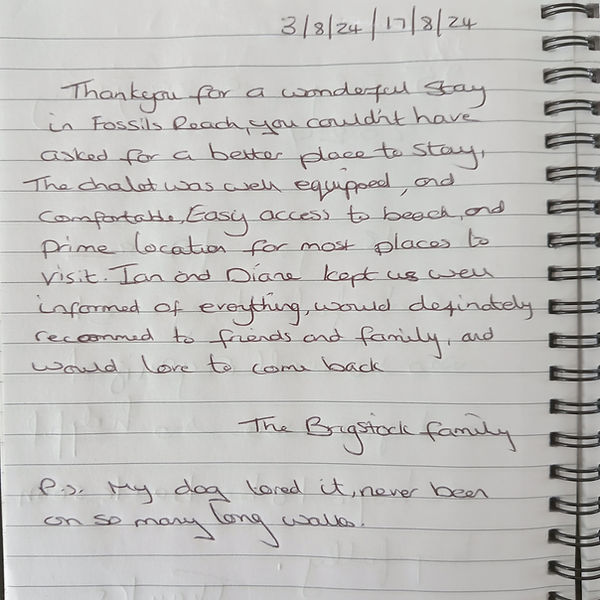 3/8/24 / 17/8/24
Thankyou for a wonderful stay
in Fossils Reach, you couldn't have
asked for a better place to stay,
The chalet was well equipped, and
Comfortable, Easy access to beach, and
prime location for most places to
visit. Ian and Diane kept us well
informed of everything, would definately
recommed to friends and family, and
would love to come back
The Brigstock family
P.S. My dog loved it, never been
on so many long walks.